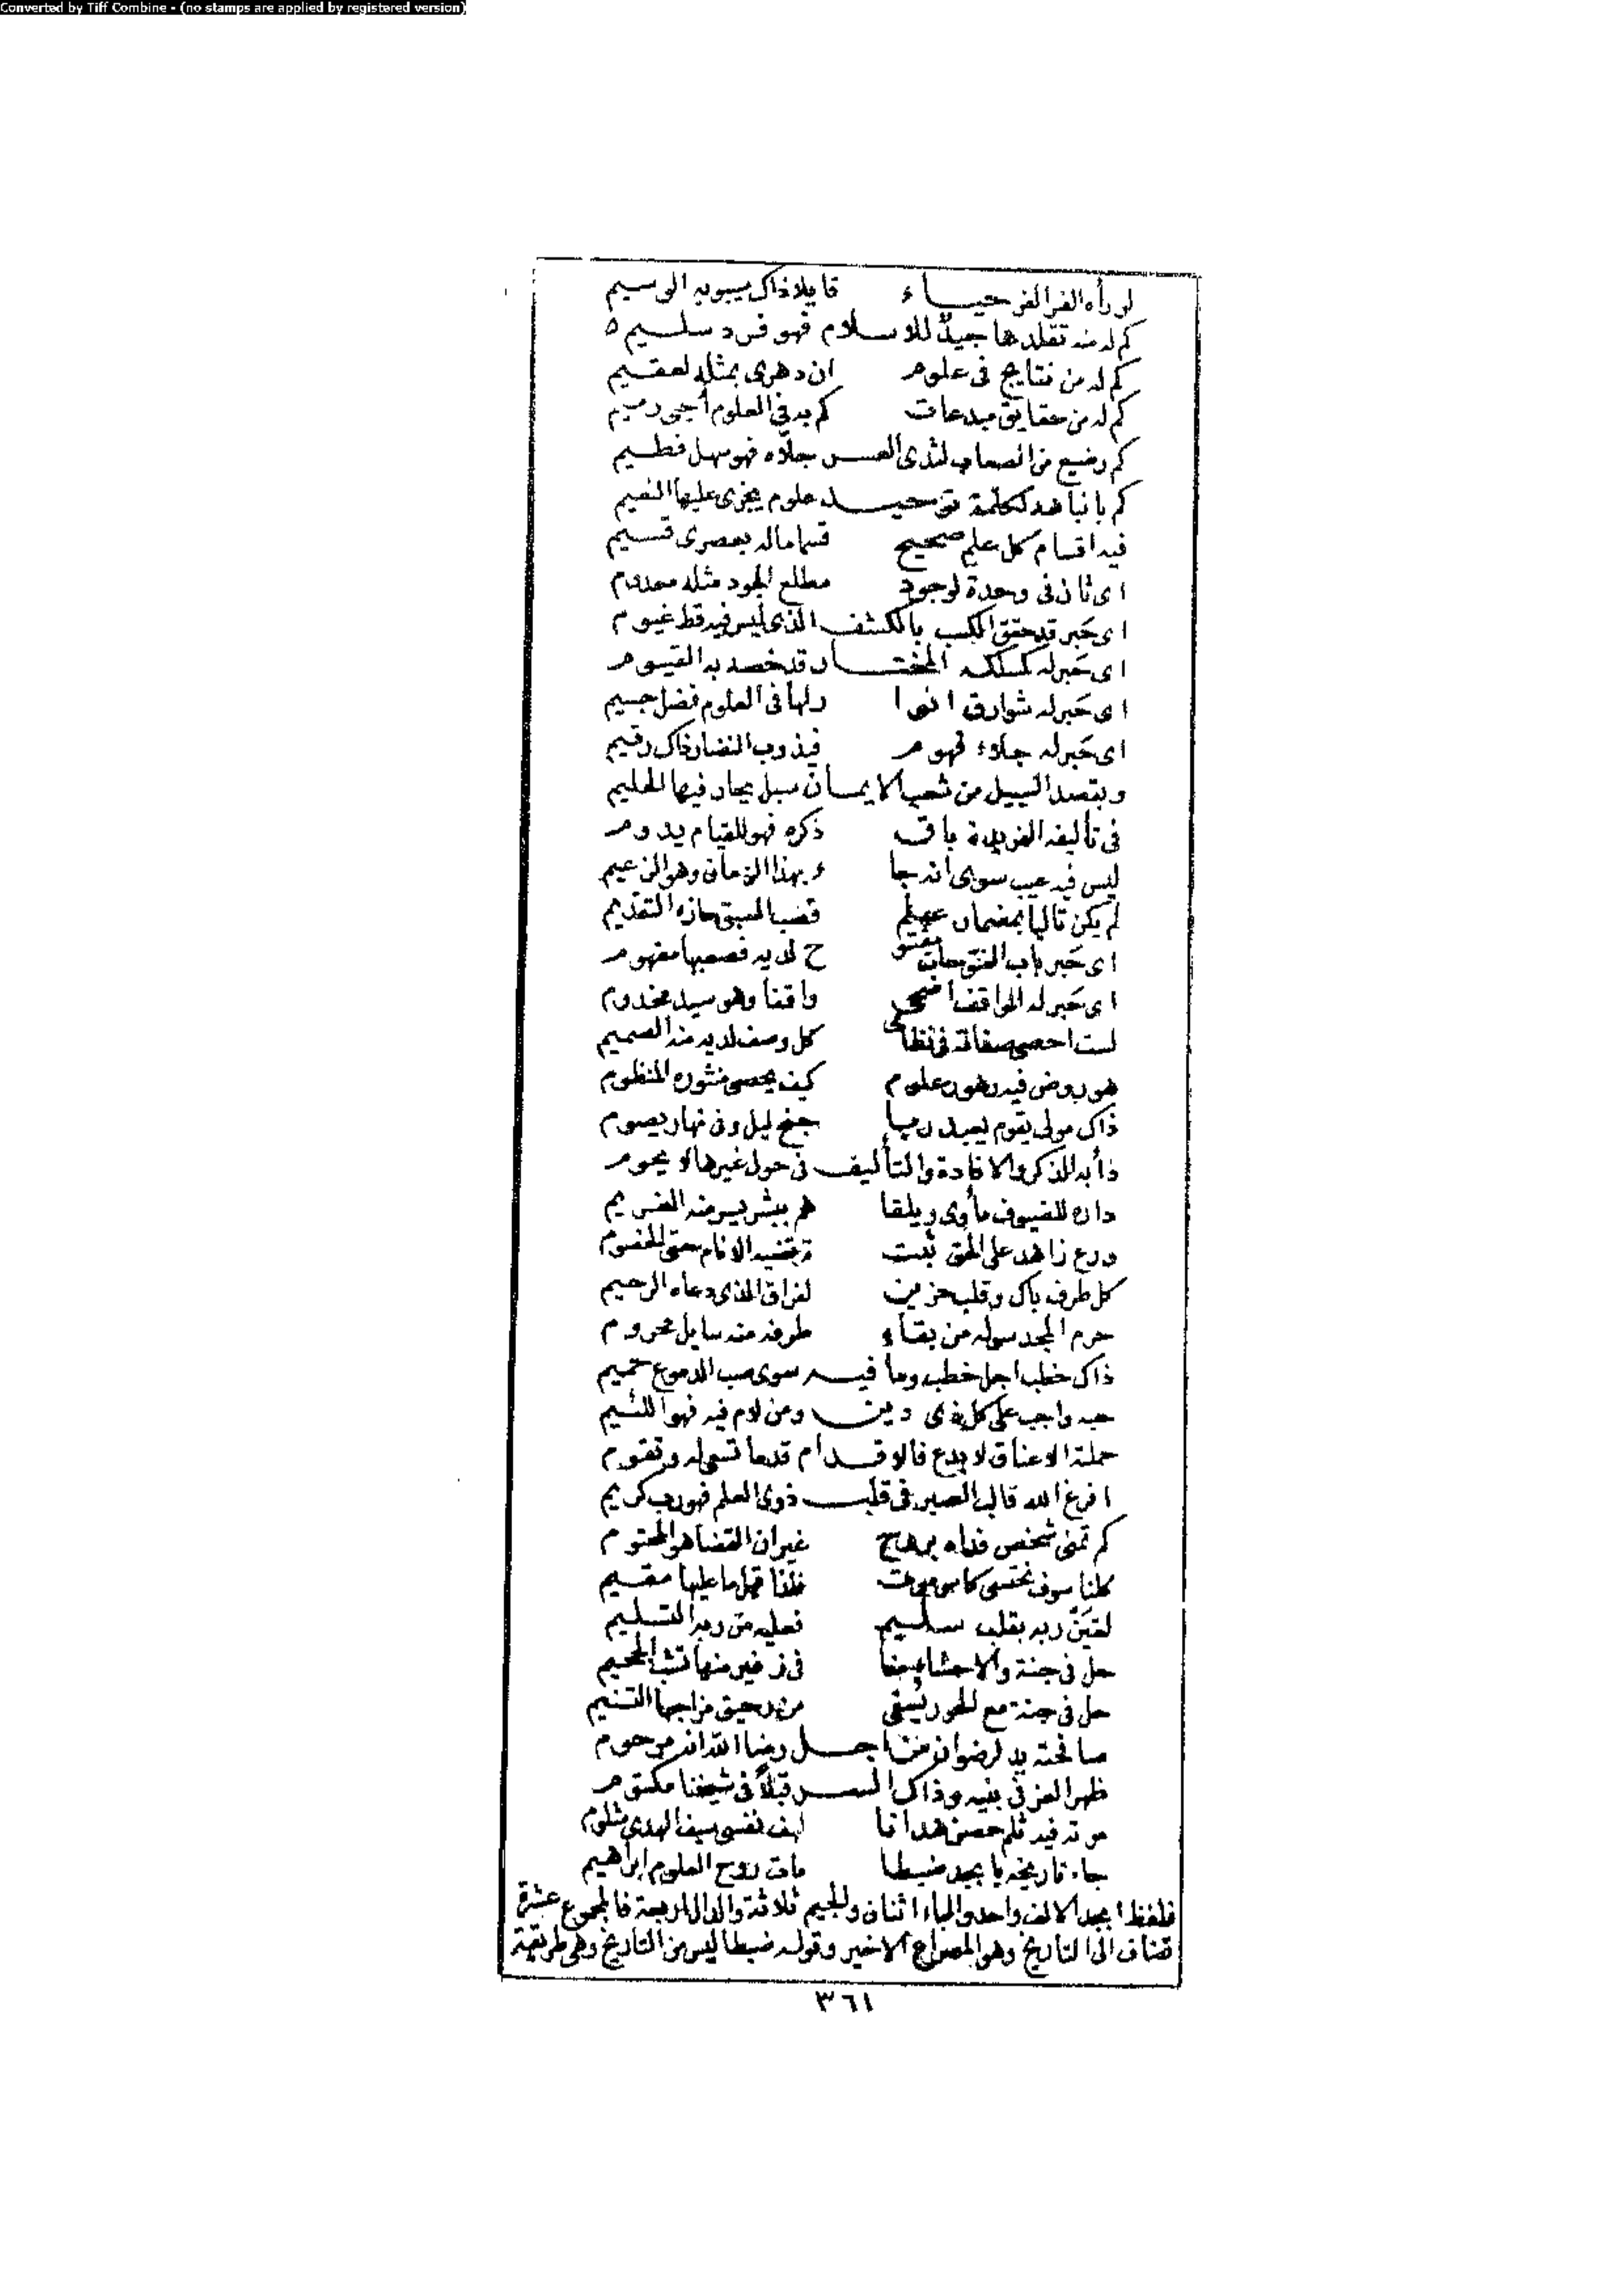 Converted by Tiff Combine - (no stamps are applied by registered version)
لو رأه الفر الفر حيـــاء قايلا ذاك سيبويه الوسيم
كم له منه تقلدها جيد للاسلام فهو فرد سليم
كم له من نتايج فى علوم ان دهرى بمثله لعقيم
كم له من حقايق مبدعات كم به فى العلوم أحيى رميم
كم رضيع من الصعاب لثدى العسـر جلاه فهو سهل فطيم
كم لكلمة توحيـــد علوم يجزى عليها النعيم
فيه اقسام كل علم صحيح قسما ماله بعصرى قسيم
اى ثان فى وحدة لوجود مطلع الجود مثله معدوم
اى حبر قد حقق الكسب بالكشف الذى ليس فيه قط غيوم
اى حبر له كمسلكه المختـــار قد خصه به القيوم
اى حبر له شوارق انوا ر لها فى العلوم فضل جسيم
اى حبر له جلاء فهوم فيذوب النضار ذاك رقيم
وبقصد السبيل من شعب الايمـان سبل يحار فيها الحليم
فى تأليفه الفريدة باق ذكره فهو للقيام يدوم
ليس فيه عيب سوى انه جا ء بهذا الزمان وهو الزعيم
لم يكن تاليا بمضمار علم قصب السبق حازه التقديم
اى حبر باب الفتوحات مفتو ح لديه فصعبها مفهوم
اى حبر له المواقف اضحى واقفا وهو سيد مخدوم
لست احصى صفاته فى نظامى كل وصف لديه منه الصميم
هو روض فيه زهور علوم كيف يحصى منثوره المنظوم
ذاك مولى يقوم يعبد ربا جنح ليل وفى نهار يصوم
دأبه الذكر والافادة والتأليف فى حول غيرها لا يحوم
داره للضيوف مأوى ويلقا هم ببشر يسر منه الغريم
ورع زاهد على الحق ثبت ترتضيه الانام حتى الخصوم
كل طرف باك وقلب حزين لفراق الذى دعاه الرحيم
حرم المجد سوله من بقاء طرفه منه سايل محروم
ذاك خطب اجل خطب وما فيـــه سوى صب الدموع حميم
حبه واجب على كل ذى ديـن ومن لام فيه فهو اللئيم
حملته الاعناق لا بدع فالاقـــدام قدما تسعى له وتقوم
افرغ الله قالب الصبر فى قلـــب ذوى العلم فهو رب كريم
كم تمنى شخص فداه بروح غير ان القضا هو المحتوم
كلنا سوف نحتسى كاس موت فلذا قيل ما عليها مقيم
لقى ربه بقلب سليم فعليه من ربه التسليم
حل فى جنة والاحشاء منا فى زفير منها تشب الجحيم
حل فى جنة مع الحور يسقى من رحيق مزاجها التسنيم
صافحته يد لرضوان من اجـــل رضا الله انه مرحوم
ظهر العز فى بنيه وذاك السـر قبلا فى شيخنا مكتوم
موته فيه ثلم حصن هدانا لهف نفسى سيف الهدى مثلوم
جاء تاريخه بابجد ضبطا مات روح العلوم ابراهيم
فلفظ ابجد الالف واحد والباء اثنان والجيم ثلاثة والدال اربعة فالمجموع عشرة
تضاف الى التاريخ وهو المصراع الاخير وقوله ضبطا ليس من التاريخ وهى طريقة
٣٦١